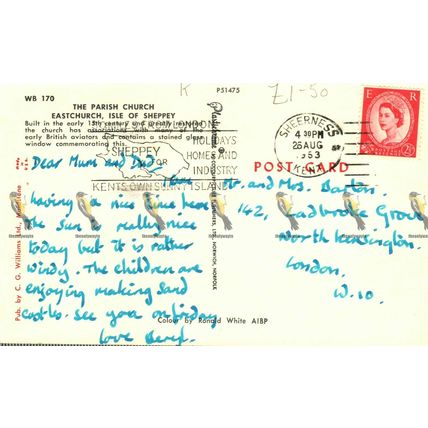 K
£1-50
WB 170
P51475
THE PARISH CHURCH
EASTCHURCH, ISLE OF SHEPPEY
Built in the early 15th century and greatly restored
the church has associations with many of the
early British aviators and contains a stained glass
window commemorating this.
LONDON
HOLIDAYS
HOMES AND
INDUSTRY
SHEPPEY
FOR
KENTS OWN SUNNY ISLAND
SHEERNESS
4 30PM
26 AUG
1963
KENT
E R
POST CARD
Dear Mum and Dad,
having a nice time here
The Sun is really nice
today but it is rather
windy. The children are
enjoying making Sand
Castles. See you on friday
love Beryl.
Mr. and Mrs. Barton.
142, Ladbroke Grove
North Kensington.
London.
W.10.
Pub. by C. G. Williams Ltd., Maidstone
Colour by Ronald White AIBP